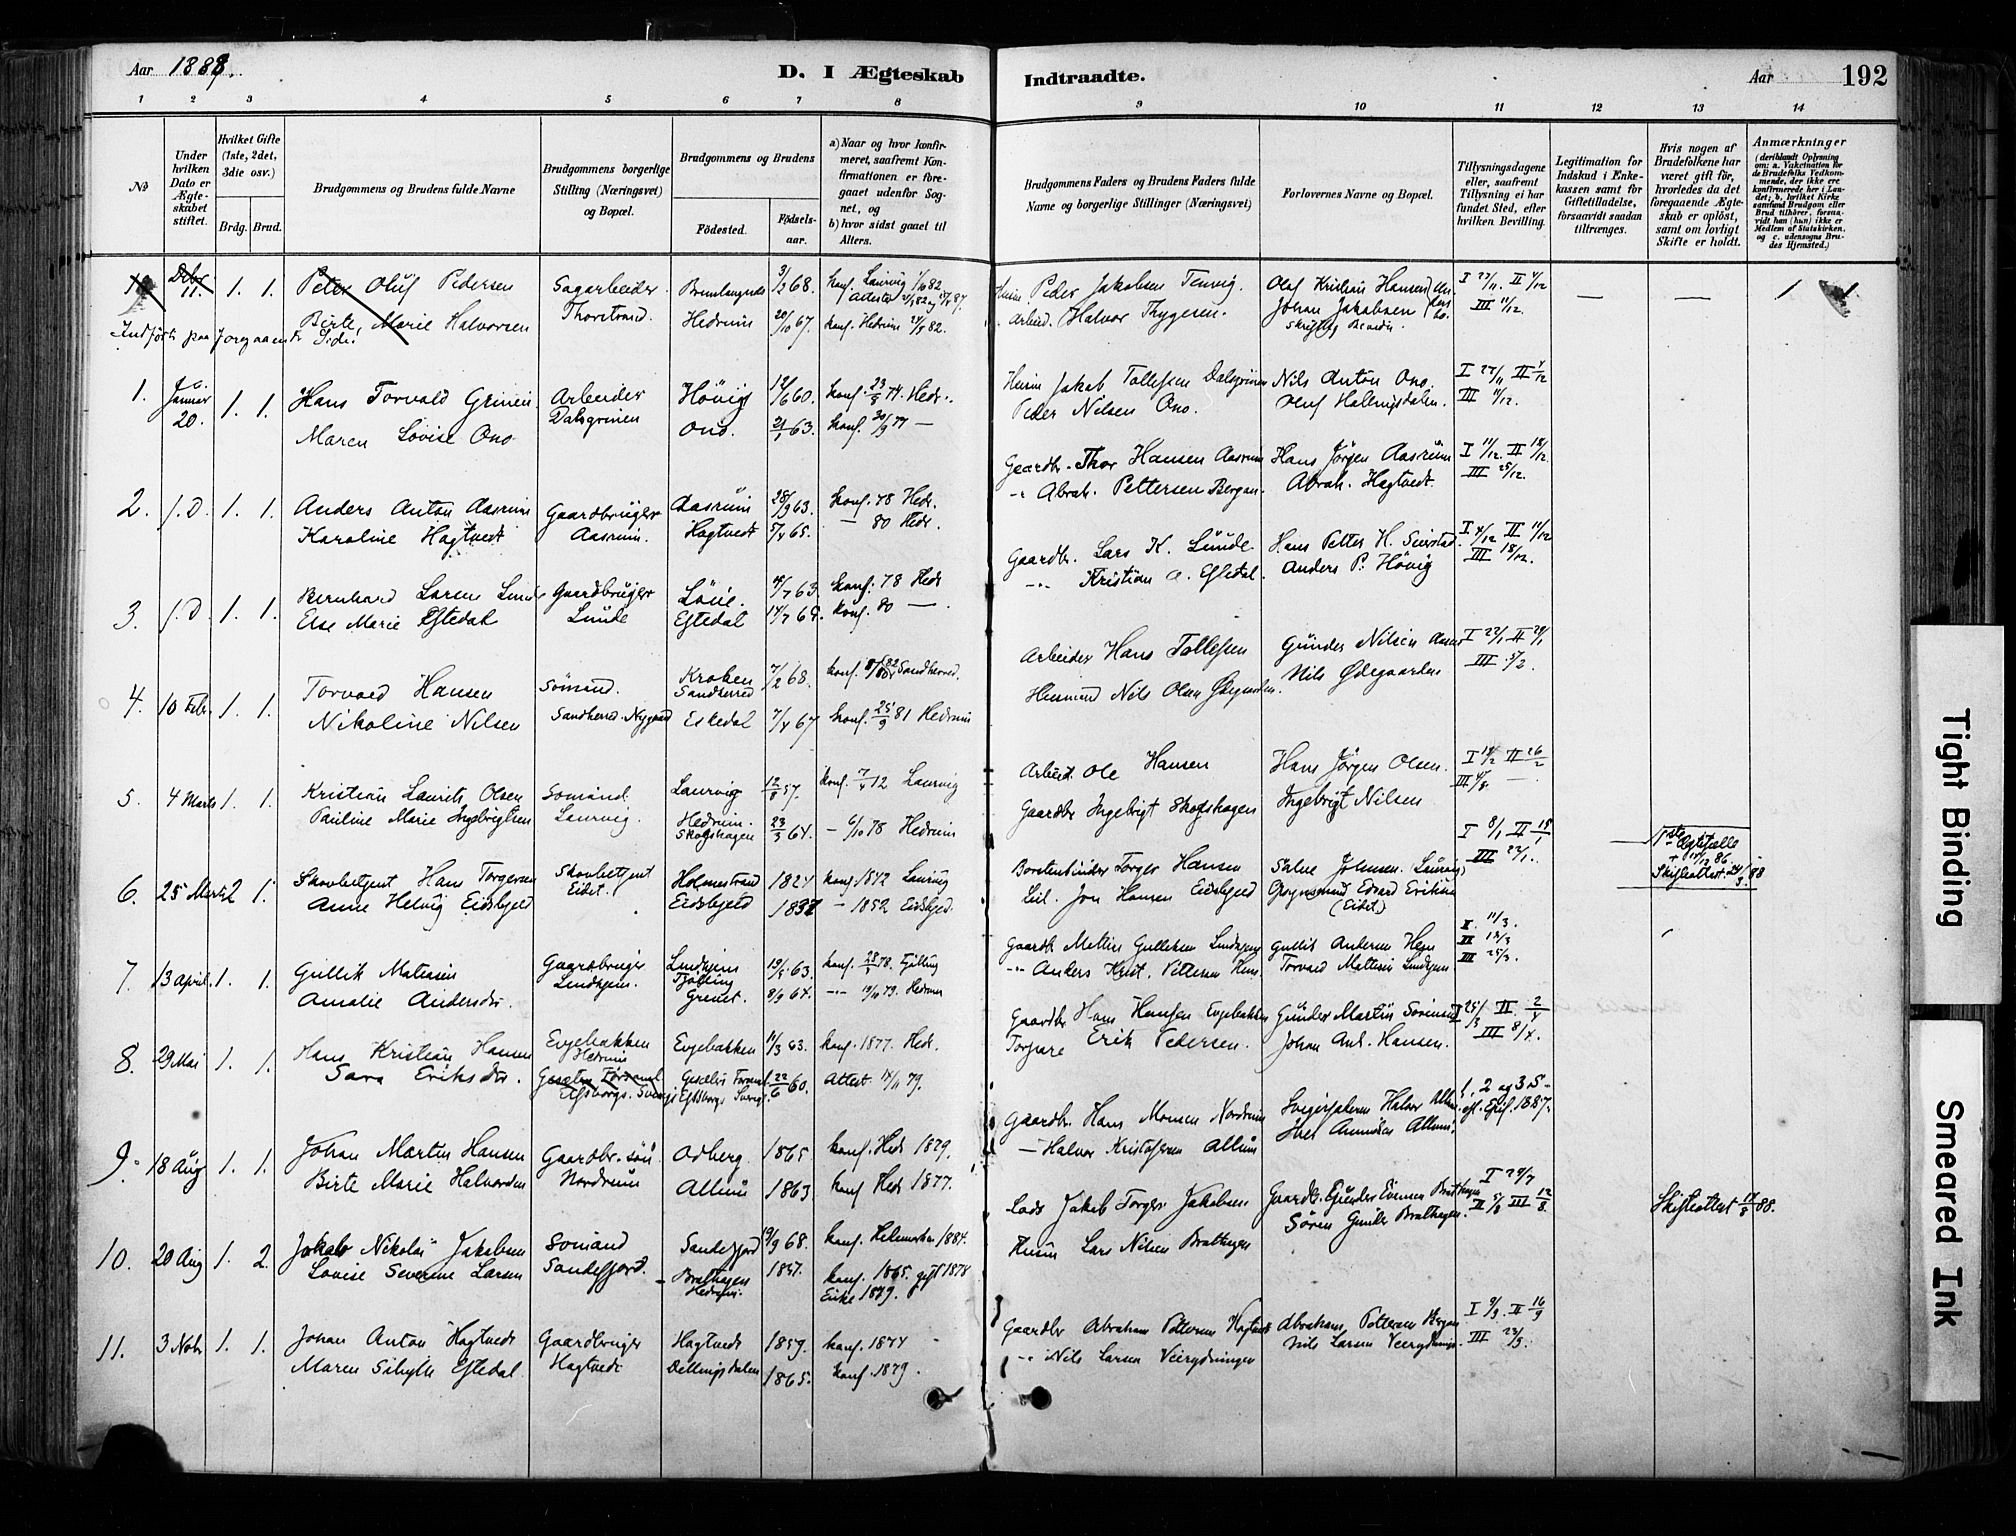 Aar 1888.
D. I Ægteskab Indtraadte.
Aar 192
1 2 3 4 5 6 7 8 9 10 11 12 13 14
No
Under hvilken Dato er Ægteskabet stiftet.
Hvilket Gifte (1ste, 2det, 3die osv.)
Brdg. Brud.
Brudgommens og Brudens fulde Navne
Brudgommens borgerlige Stilling (Næringsvei) og Bopæl.
Brudgommens og Brudens
Födested.
Födsels-aar.
a) Naar og hvor konfirmeret, saafremt Konfirmationen er foregaaet udenfor Sognet, og
b) hvor sidst gaaet til Alters.
Brudgommens Faders og Brudens Faders fulde Navne og borgerlige Stillinger (Næringsvei)
Forlovernes Navne og Bopæl.
Tillysningsdagene eller, saafremt Tillysning ei har fundet Sted, efter hvilken Bevilling.
Legitimation for Indskud i Ænkekassen samt for Giftetilladelse, forsaavidt saadan tiltrænges.
Hvis nogen af Brudefolkene har været gift før, hvorledes da det foregaaende Ægteskab er opløst, samt om lovligt Skifte er holdt.
Anmærkninger
(deriblandt Oplysning om: a. Vakcination for de Brudefolks Vedkommende, der ikke ere konfirmerede her i Landet; b. hvilket Kirkesamfund Brudgom eller Brud tilhører, forsaavidt han (hun) ikke er Medlem af Statskirken, og c. udensogns Brudes Hjemsted.)
11. 1. 1. Peter Oluf Pedersen Sagarbeider Brunlangnæs 3/2 68. Konf. Laurvig 1/10 82
Peder Jakobsen Olaf Kristian Hansen I 27/11. II 4/12
Birte Marie Halvorsen Thorstrand. Hedrum 20/10 67. konf. Hedrum 24/9 82.
Arbeid. Halvor Thygesen. Johan Jakobsen III 11/12.
Indført paa foregaaende Side.
1. Januar 20. 1. 1. Hans Torvald Grinen Arbeider Hövig 12/6 60. konf. 23/8 74. Hedr.
Jakob Tollefsen Dalsgrinen Nils Anton Ono. I 27/11 II 4/12
Maren Lovise Ono Dalsgrinen Ono. 21/1 63. konf. 30/9 77 —
Peder Nilsen Ono. Oluf Hallingsdalen. III 11/12.
2. f. D. 1. 1. Anders Anton Aasrum Gaardbruger Aasrum 28/9 63. konf. 78 Hedr.
Gaardbr. Thor Hansen Aasrum Hans Jörgen Aasrum I 11/12. II 18/12.
Karoline Hagtvedt Aasrum. Hagtvedt 5/4 65. — 80 Hedr.
Abrah. Pettersen Bergan. Abrah. Hagtvedt. III 25/12.
3. f. D 1. 1. Bernhard Laren Lunde Gaardbruger 4/7 63 konf. 78 Hedr
Gaardbr. Lars K. Lunde Hans Petter H. Seierstad. I 4/12 II 11/12
Else Marie Eftedal Lunde Eftedal 14/7 64. konf. 80 —.
Kristian A. Eftedal. Anders P. Hövig III 18/12.
4. 10 Febr. 1. 1. Torvald Hansen Sömand. Kroken Sandherred 7/2 68. Sandherred.
Arbeider Hans Tollefsen Gunder Nilsen I 22/1 II 29/1
Nikoline Nilsen Sandherred Nygaard Eskedal 7/4 67 konf. 25/9 81 Hedrum
Husmand Nils Olsen Ödegaarden. Nils Ödegaarden III 5/2
5. 4 Marts 1. 1. Kristian Laurits Olsen Somand Laurvig 12/8 57. konf. 7/4 72 Laurvig
Arbeid. Ole Hansen Hans Jörgen Olsen. II 26/2
Pauline Marie Ingebrigtsen Laurvig. Hedrum. Skogshagen 23/3 64. — 6/10 78 Hedrum
Gaardbr Ingebrigt Skogshagen Ingebrigt Nilsen
6. 25 Marts 2 1. Skovbetjent Hans Torgersen Skovbetjent Holmestrand 1824 konf. 1842 Laurvig
Borstenbinder Torger Hansen Salve Johnsen (Laurvig) I 8/1 II 15/1 III 22/1.
Anne Helvig Eidsbjerg Eidet. Eidsbjerg 1837 — 1852 Eidsbjerg.
Jon Hansen Eidsbjerg Edvard Eriksen (Eidet)
1ste Ægtefælle
86
Skifteattest
7. 13 April. 1. 1. Gullik Matiasen Gaardbruger Lindhjem Tjölling 19/5 63. konf. 28/4 78. Tjölling
Gaardb Gullik Andersen Hem I 11/3. II 18/3 III 25/3.
Amalie Andersdtr. Lindhjem. Grenet. 8/9 64. 19/11 79. Hedrum
Anders Krist. Pettersen Hem. Torvald Lindhjem
8. 29 Mai 1. 1. Hans Kristian Hansen Evjebakken Hedrum Evjebakken 11/3 63. konf. 1877. Hedr.
Gaardbr Hans Hansen Evjebakken Gunder Martin Sörensen I 25/3 II. 2/4
Sara Eriksdtr. Elfsborgs. Sverige Elfsborgs Sverige. 22/6 60. Attest 14/11 79.
Torpare Erik Pedersen. Johan And. Hansen. III 8/4.
9. 18 Aug 1. 1. Johan Martin Hansen Gaardbr. sön Odberg. 1865 konf. Hedr 1879.
Gaardbr. Hans Monsen Nordrum Svigerfaderen Halvor Allum 1, 2 og 3 S. eft. Epif. 1887.
Birte Marie Halvorsen Nordrum Allum 1863 konf Hedr 1877.
— Halvor Kristofersen Allum
10. 20 Aug 1. 2. Jakob Nikolai Jakobsen Somand Sandefjord 19/9 68. konf. 1884.
Lods Jakob Torger Jakobsen I 29/7
Lovise Severine Larsen Sandefjord. Bralhagen Hedrum. 1847. konf. 1865. gift 1878 Enke 1879.
Lars Nilsen Bralhagen Sören Gunder Bralhagen. II 5/8 III 12/8.
Skifteattest 17/8 88.
11. 3 Nobr 1. 1. Johan Anton Hagtvedt Gaardbruger Hagtvedt 1859. konf. 1874
Gaardbr Abraham Pettersen Hagtvedt Abraham Pettersen Bergan I 9/9. II 16/9
Maren Sibylle Eftedal Hagtvedt Dellingsdalen 1865. konf. 1879.
Nils Larsen Veierydningen Nils Larsen Veierydningen. III 23/9.
Tight Binding
Smeared Ink